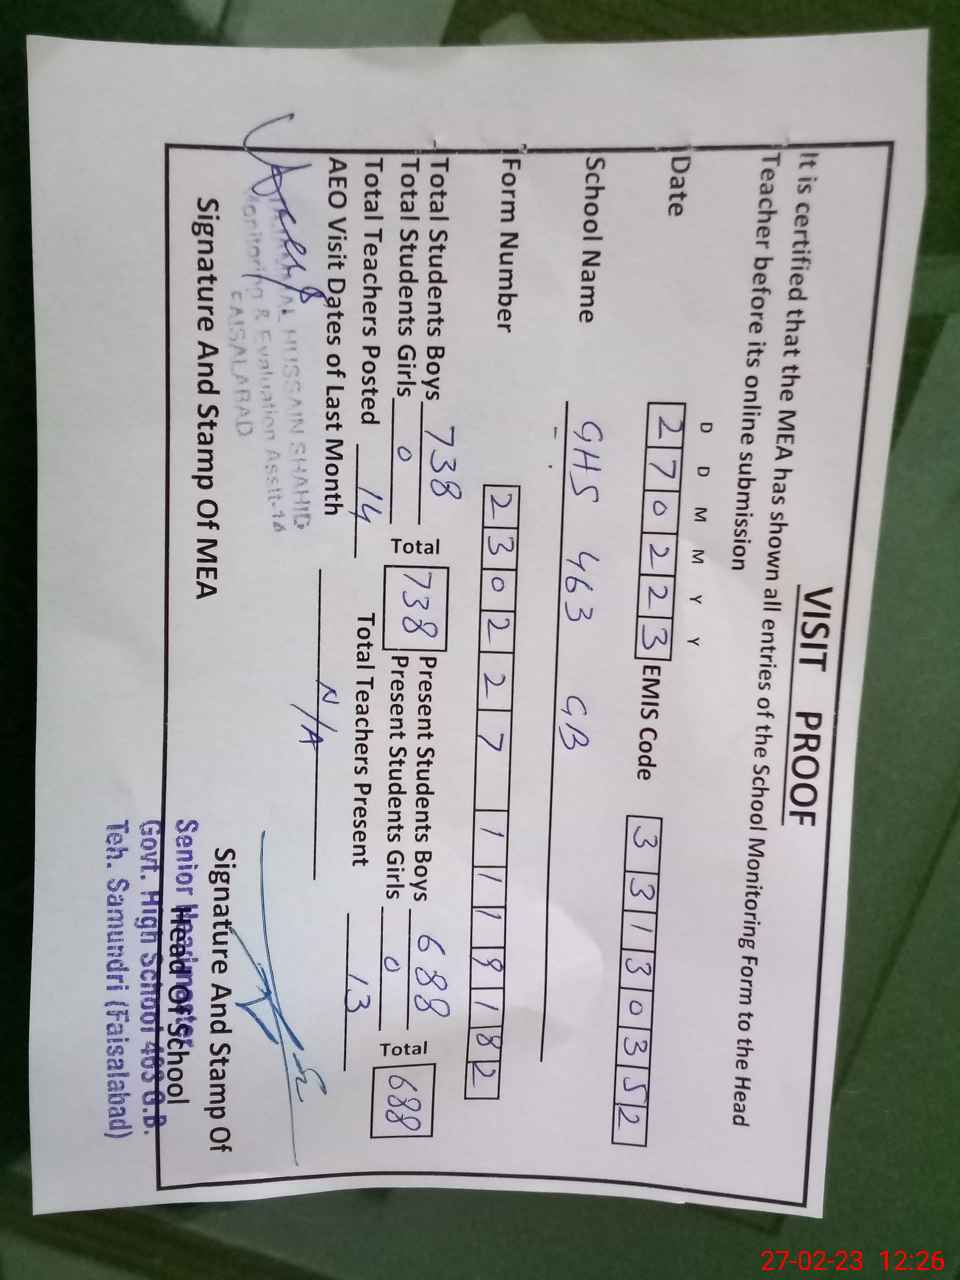 VISIT PROOF
It is certified that the MEA has shown all entries of the School Monitoring Form to the Head
Teacher before its online submission
D D M M Y Y
Date 270223 EMIS Code 33130352
School Name GHS 463 GB
Form Number 230227 1119182
Total Students Boys 738 Total 738 Present Students Boys 688 Total 688
Total Students Girls 0 Present Students Girls 0
Total Teachers Posted 14 Total Teachers Present 13
AEO Visit Dates of Last Month N/A
HUSSAIN SHAHID
Monitoring & Evaluation Asstt-14
FAISALABAD
Signature And Stamp Of MEA
Signature And Stamp Of
Head Of School
Senior Headmaster
Govt. High School 463 G.B.
Teh. Samundri (Faisalabad)
27-02-23 12:26